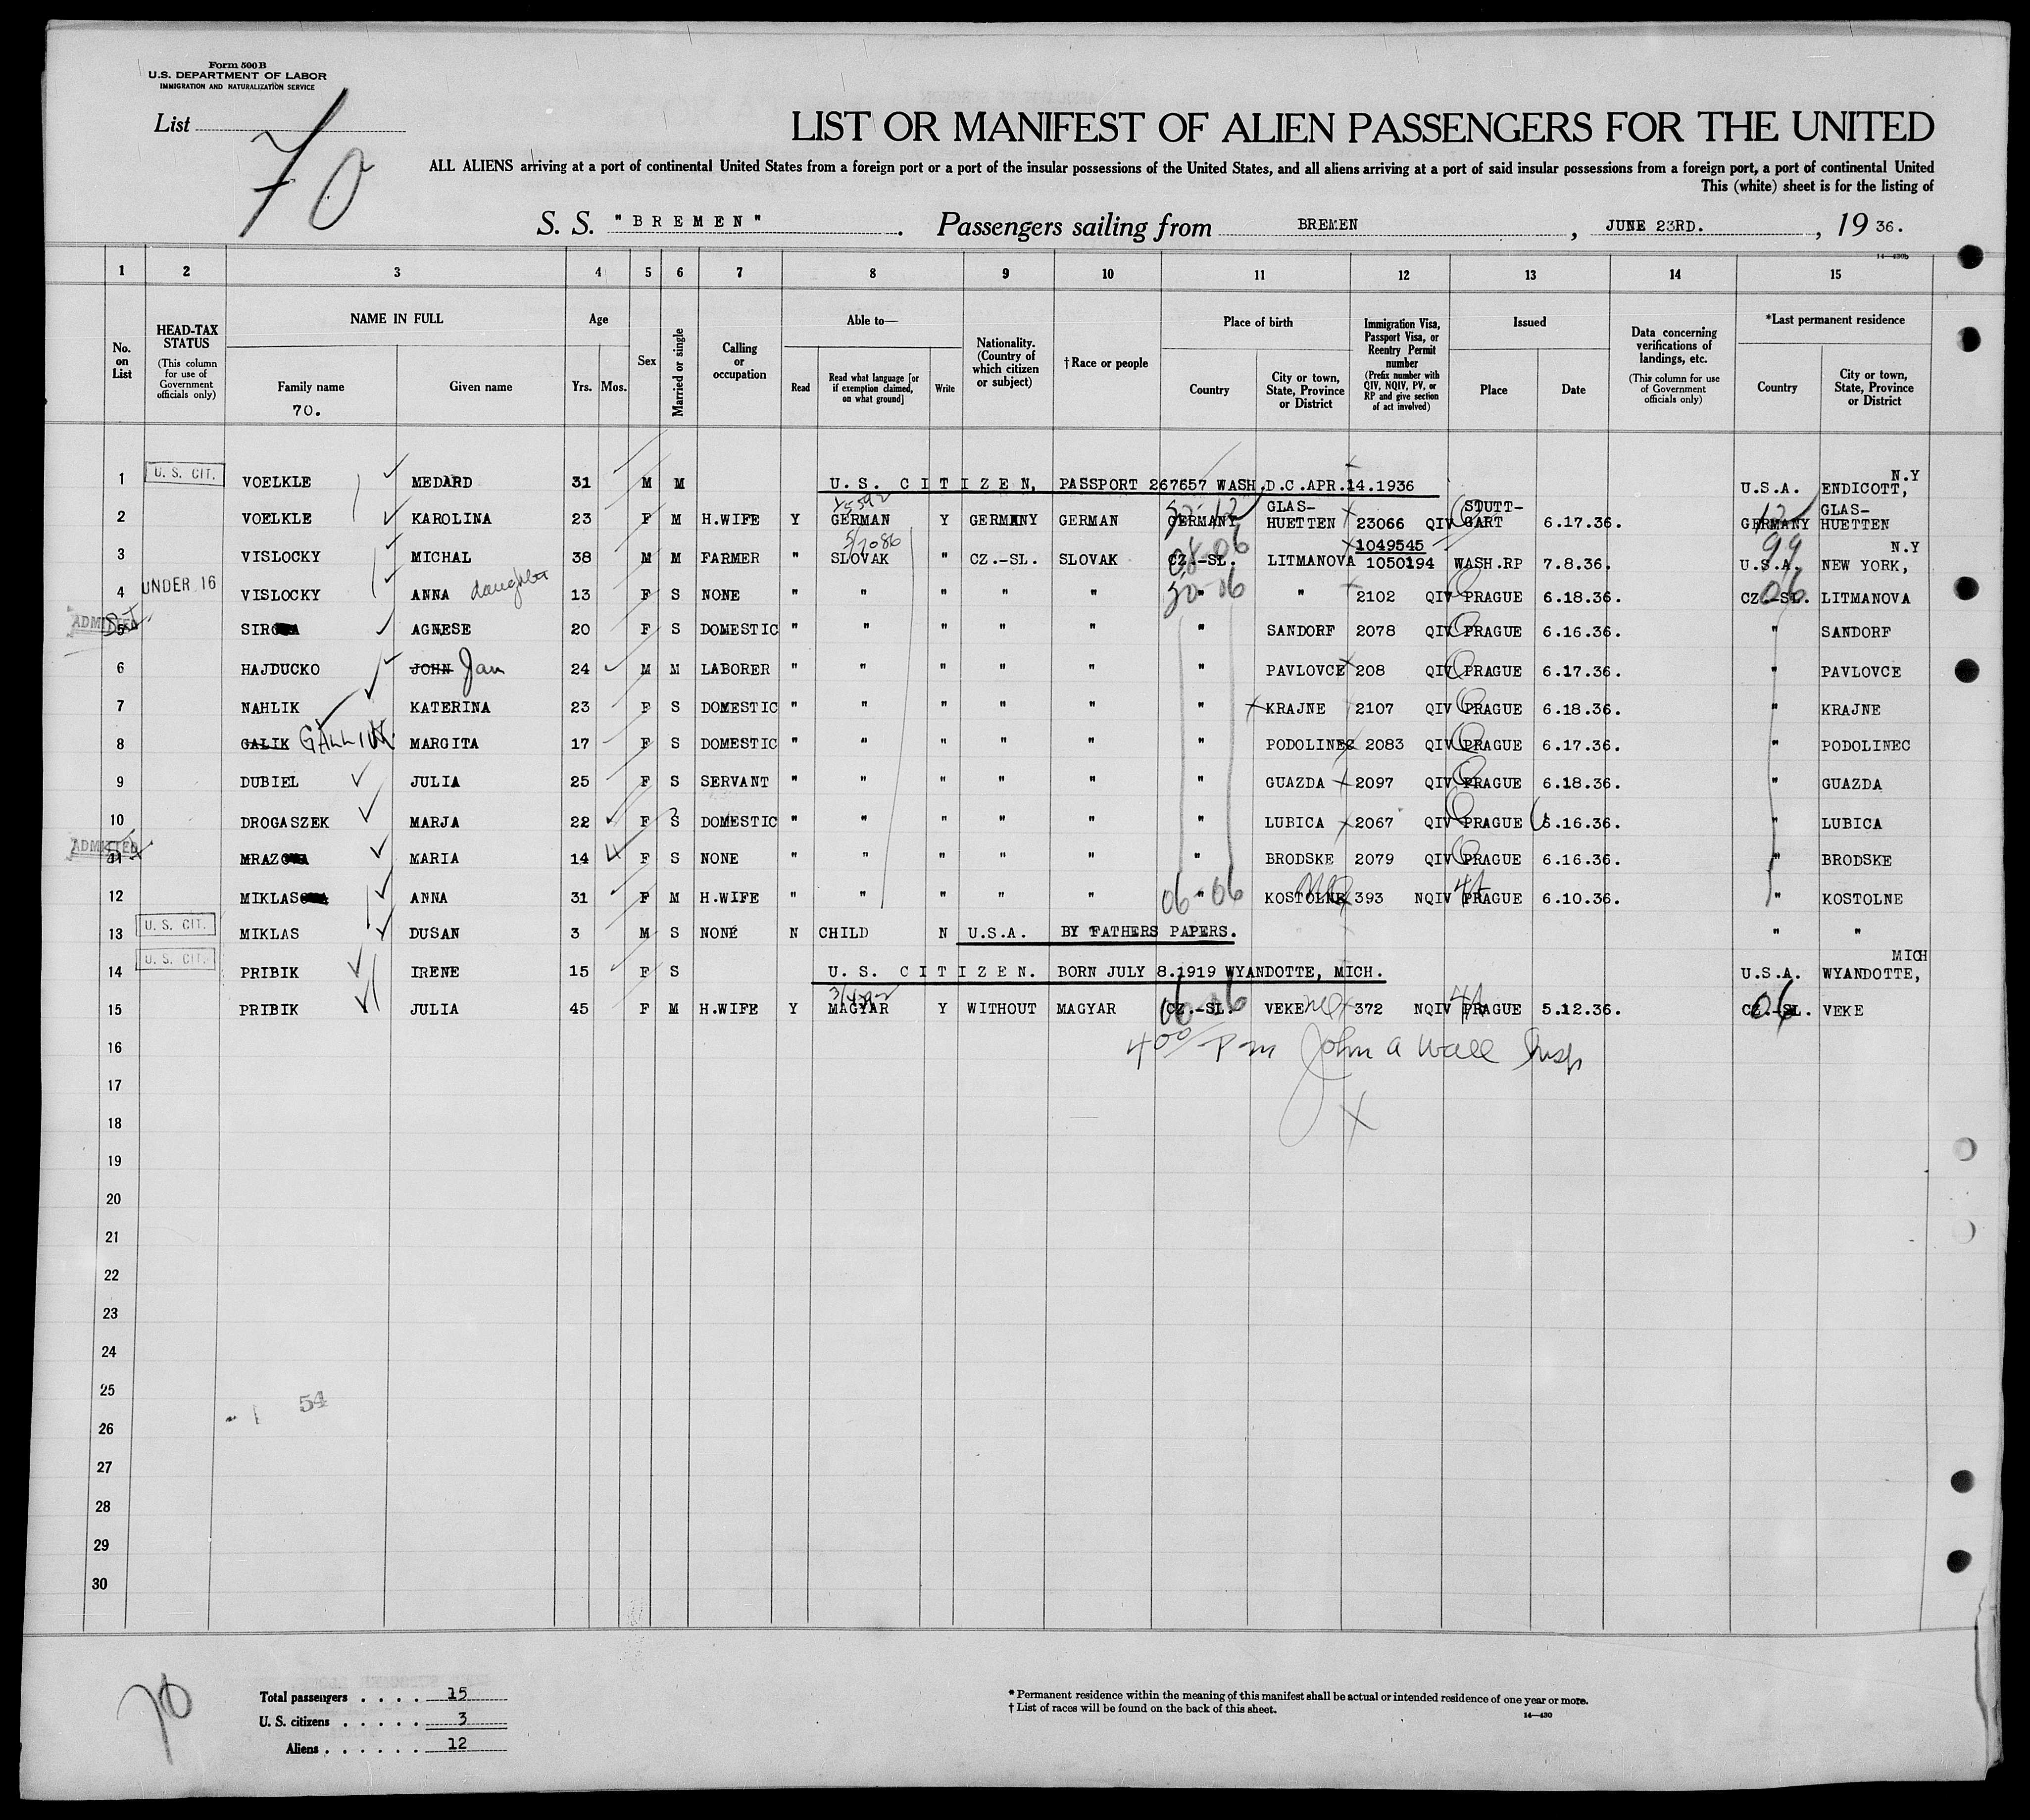 Form 500B
U.S. DEPARTMENT OF LABOR
IMMIGRATION AND NATURALIZATION SERVICE
List 70
LIST OR MANIFEST OF ALIEN PASSENGERS FOR THE UNITED
ALL ALIENS arriving at a port of continental United States from a foreign port or a port of the insular possessions of the United States, and all aliens arriving at a port of said insular possessions from a foreign port, a port of continental United
This (white) sheet is for the listing of
S. S. "BREMEN". Passengers sailing from BREMEN, JUNE 23RD., 19 36.
14—430b
1 2 3 4 5 6 7 8 9 10 11 12 13 14 15
No. on List
HEAD-TAX STATUS (This column for use of Government officials only)
NAME IN FULL
Family name
70.
Given name
Age
Yrs. Mos.
Sex
Married or single
Calling or occupation
Able to—
Read
Read what language [or if exemption claimed, on what ground]
Write
Nationality. (Country of which citizen or subject)
†Race or people
Place of birth
Country
City or town, State, Province or District
Immigration Visa, Passport Visa, or Reentry Permit number (Prefix number with QIV, NQIV, PV, or RP and give section of act involved)
Issued
Place
Date
Data concerning verifications of landings, etc. (This column for use of Government officials only)
*Last permanent residence
Country
City or town, State, Province or District
1 U. S. CIT. VOELKLE MEDARD 31 M M U. S. CITIZEN, PASSPORT 267657 WASH.D.C.APR.14.1936 U.S.A. ENDICOTT, N.Y
2 VOELKLE KAROLINA 23 F M H.WIFE Y GERMAN Y GERMANY GERMAN GERMANY GLAS-HUETTEN 23066 QIV STUTT-GART 6.17.36. GERMANY GLAS-HUETTEN
3 VISLOCKY MICHAL 38 M M FARMER " SLOVAK " CZ.-SL. SLOVAK CZ.-SL. LITMANOVA 1049545 1050194 WASH.RP 7.8.36. U.S.A. NEW YORK, N.Y
4 UNDER 16 VISLOCKY ANNA daughter 13 F S NONE " " " " " " " 2102 QIV PRAGUE 6.18.36. CZ.-SL. LITMANOVA
5 ADMITTED SIRO AGNESE 20 F S DOMESTIC " " " " " " SANDORF 2078 QIV PRAGUE 6.16.36. " SANDORF
6 HAJDUCKO JOHN Jan 24 M M LABORER " " " " " " PAVLOVCE 208 QIV PRAGUE 6.17.36. " PAVLOVCE
7 NAHLIK KATERINA 23 F S DOMESTIC " " " " " " KRAJNE 2107 QIV PRAGUE 6.18.36. " KRAJNE
8 GALIK MARGITA 17 F S DOMESTIC " " " " " " PODOLINEC 2083 QIV PRAGUE 6.17.36. " PODOLINEC
9 DUBIEL JULIA 25 F S SERVANT " " " " " " GUAZDA 2097 QIV PRAGUE 6.18.36. " GUAZDA
10 DROGASZEK MARJA 22 F S DOMESTIC " " " " " " LUBICA 2067 QIV PRAGUE 6.16.36. " LUBICA
11 ADMITTED MRAZ MARIA 14 4 F S NONE " " " " " " BRODSKE 2079 QIV PRAGUE 6.16.36. " BRODSKE
12 MIKLAS ANNA 31 F M H.WIFE " " " " " 06-06 " KOSTOLNE 393 NQIV PRAGUE 6.10.36. " KOSTOLNE
13 U. S. CIT. MIKLAS DUSAN 3 M S NONE N CHILD N U.S.A. BY FATHERS PAPERS. " "
14 U. S. CIT. PRIBIK IRENE 15 F S U. S. CITIZEN. BORN JULY 8.1919 WYANDOTTE, MICH. U.S.A. WYANDOTTE, MICH
15 PRIBIK JULIA 45 F M H.WIFE Y MAGYAR Y WITHOUT MAGYAR CZ.-SL. VEKE 372 NQIV PRAGUE 5.12.36. CZ.-SL. VEKE
16 4 00 Pm John A Wall Insp
17
18
19
20
21
22
23
24
25
54
26
27
28
29
30
70
Total passengers . . . . 15
U. S. citizens . . . . . 3
Aliens . . . . . . 12
* Permanent residence within the meaning of this manifest shall be actual or intended residence of one year or more.
† List of races will be found on the back of this sheet.
14—430